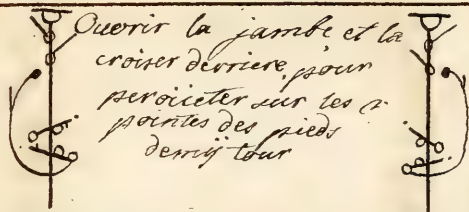 Ouvrir la jambe et la
croiser derriere, pour
piroüeter sur les 2
pointes des pieds
demÿ tour